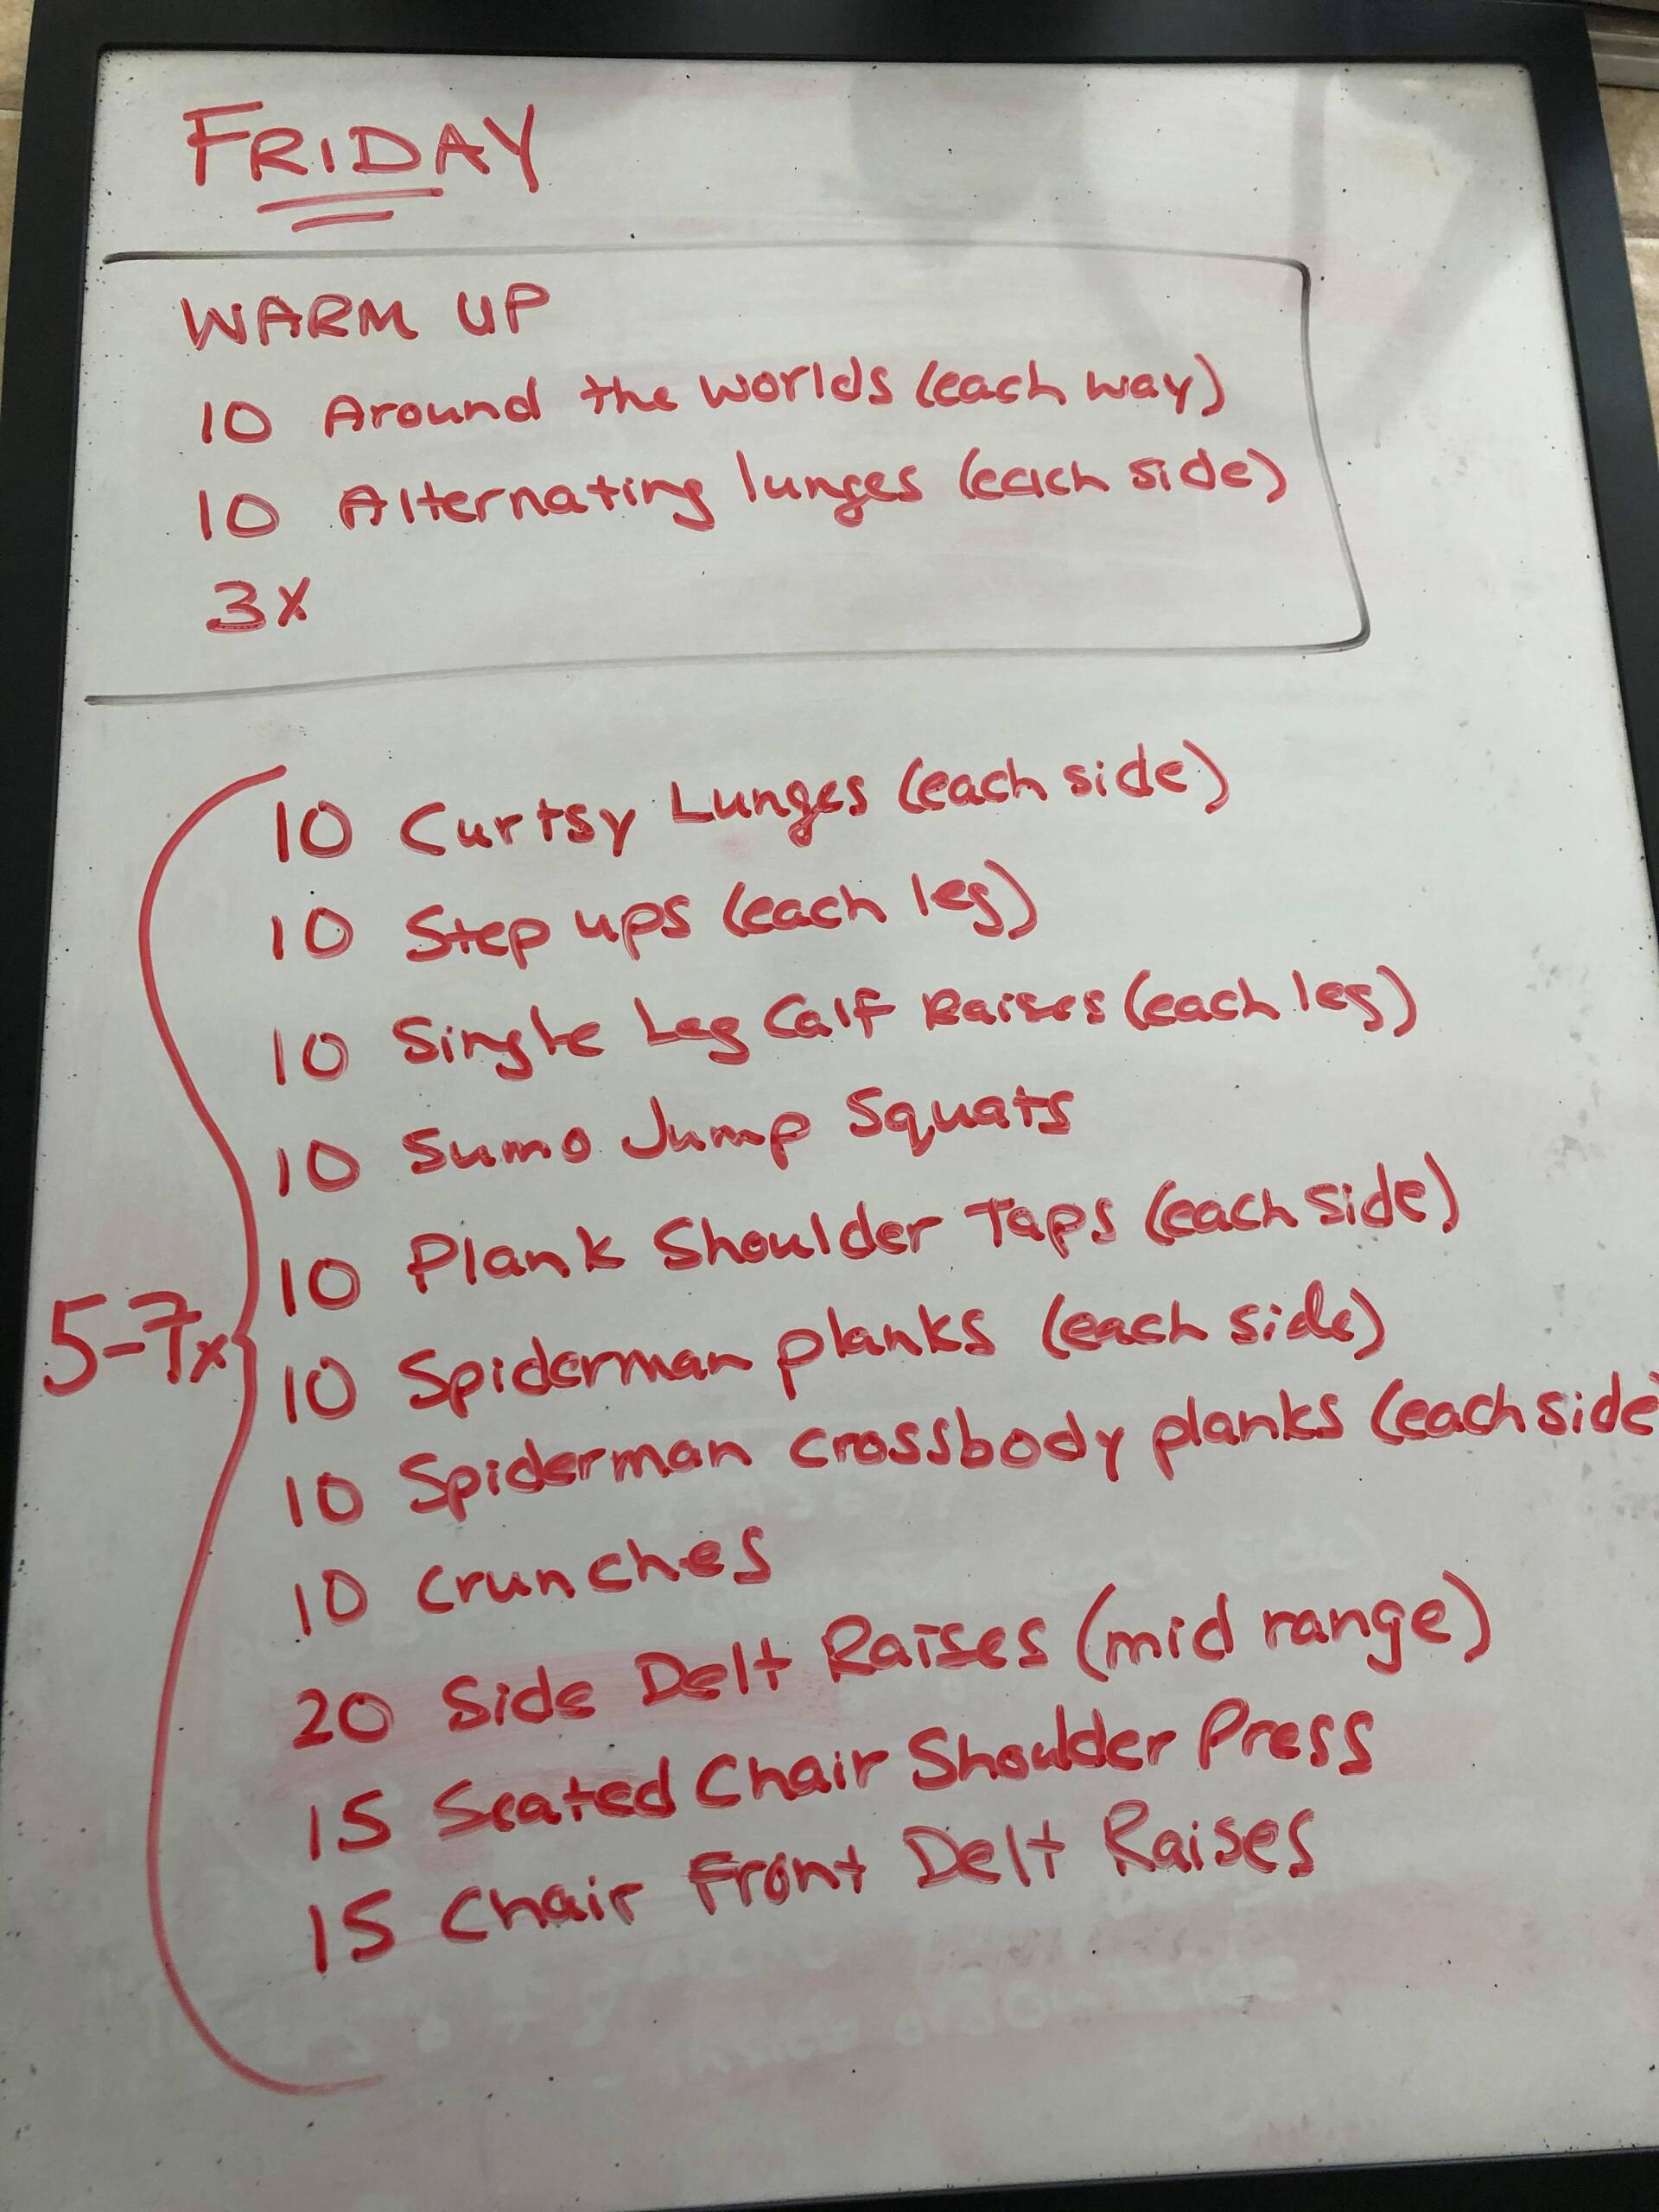 FRIDAY
WARM UP
10 Around the worlds (each way)
10 Alternating lunges (each side)
3x
10 Curtsy Lunges (each side)
10 Step ups (each leg)
10 Single Leg Calf Raises (each leg)
10 Sumo Jump Squats
10 Plank Shoulder Taps (each side)
5-7x
10 Spiderman planks (each side)
10 Spiderman crossbody planks (each side)
10 crunches
20 Side Delt Raises (mid range)
15 Seated Chair Shoulder Press
15 Chair Front Delt Raises